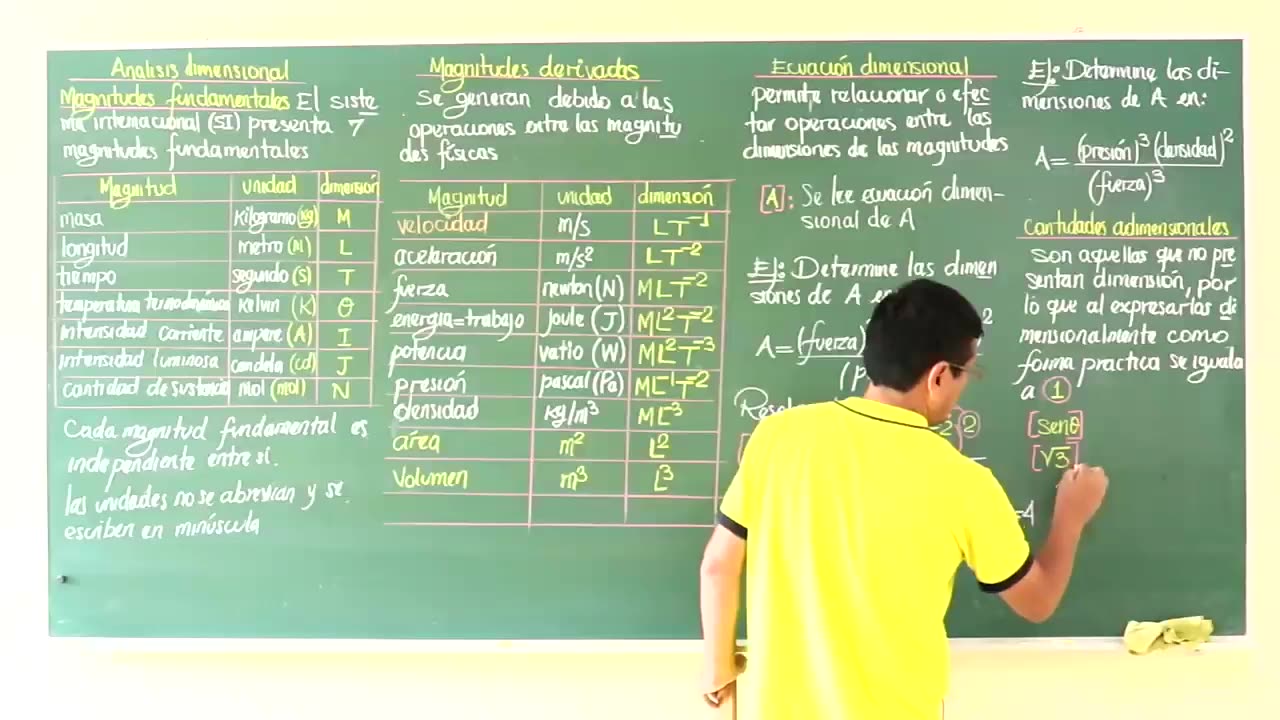 Analisis dimensional
Magnitudes fundamentales El siste
ma internacional (SI) presenta 7
magnitudes fundamentales
Magnitud unidad dimensión
masa kilogramo (kg) M
longitud metro (m) L
tiempo segundo (s) T
temperatura termodinámica Kelvin (K) θ
intensidad corriente ampere (A) I
intensidad luminosa candela (cd) J
cantidad de sustancia mol (mol) N
Cada magnitud fundamental es
independiente entre sí.
las unidades no se abrevian y se
escriben en minúscula
Magnitudes derivadas
Se generan debido a las
operaciones entre las magnitu
des físicas
Magnitud unidad dimensión
velocidad m/s LT⁻¹
aceleración m/s² LT⁻²
fuerza newton (N) MLT⁻²
energia=trabajo Joule (J) ML²T⁻²
potencia vatio (W) ML²T⁻³
presión pascal (Pa) ML⁻¹T⁻²
densidad kg/m³ ML⁻³
área m² L²
Volumen m³ L³
Ecuación dimensional
permite relacionar o efec
tar operaciones entre las
dimensiones de las magnitudes
[A]: Se lee ecuación dimen-
sional de A
Ej: Determine las dimen
siones de A
A= (fuerza) 2
(p
-2 2
=4
Ej: Determine las di-
mensiones de A en:
A= (presión)³ (densidad)²
(fuerza)³
Cantidades adimensionales
son aquellas que no pre
sentan dimensión, por
lo que al expresarlas di
mensionalmente como
forma practica se iguala
a 1
[senθ]
[√3]